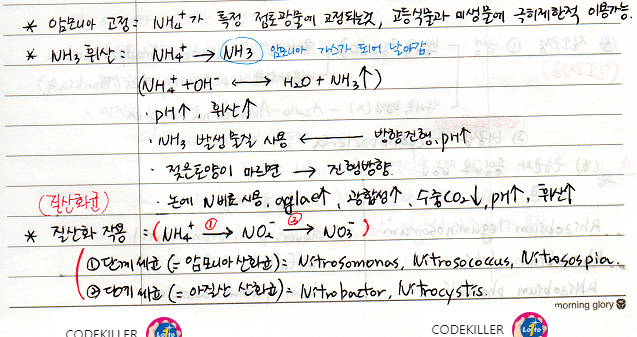 * 암모니아 고정 = NH₄⁺가 특정 점토광물에 고정되는것, 고등식물과 미생물에 극히제한적 이용가능.
* NH₃ 휘산 = NH₄⁺ → NH3 암모니아 가스가 되어 날아감.
(NH₄⁺ + OH⁻ ⟷ H₂O + NH₃↑)
· pH↑, 휘산↑
· NH₃ 발생물질 사용 ⟵ 방향진행, pH↑
· 젖은토양이 마르면 → 진행방향.
(질산화균) · 논에 N비료 시용, aglae↑, 광합성↑, 수중CO₂↓, pH↑, 휘산↑
* 질산화 작용 = (NH₄⁺ ①→ NO₂⁻ ②→ NO₃⁻)
①단계세균 (= 암모니아산화균) = Nitrosomonas, Nitrosococcus, Nitrosospia.
②단계세균 (= 아질산 산화균) = Nitrobactor, Nitrocystis.
morning glory
CODEKILLER Lotto CODEKILLER Lotto